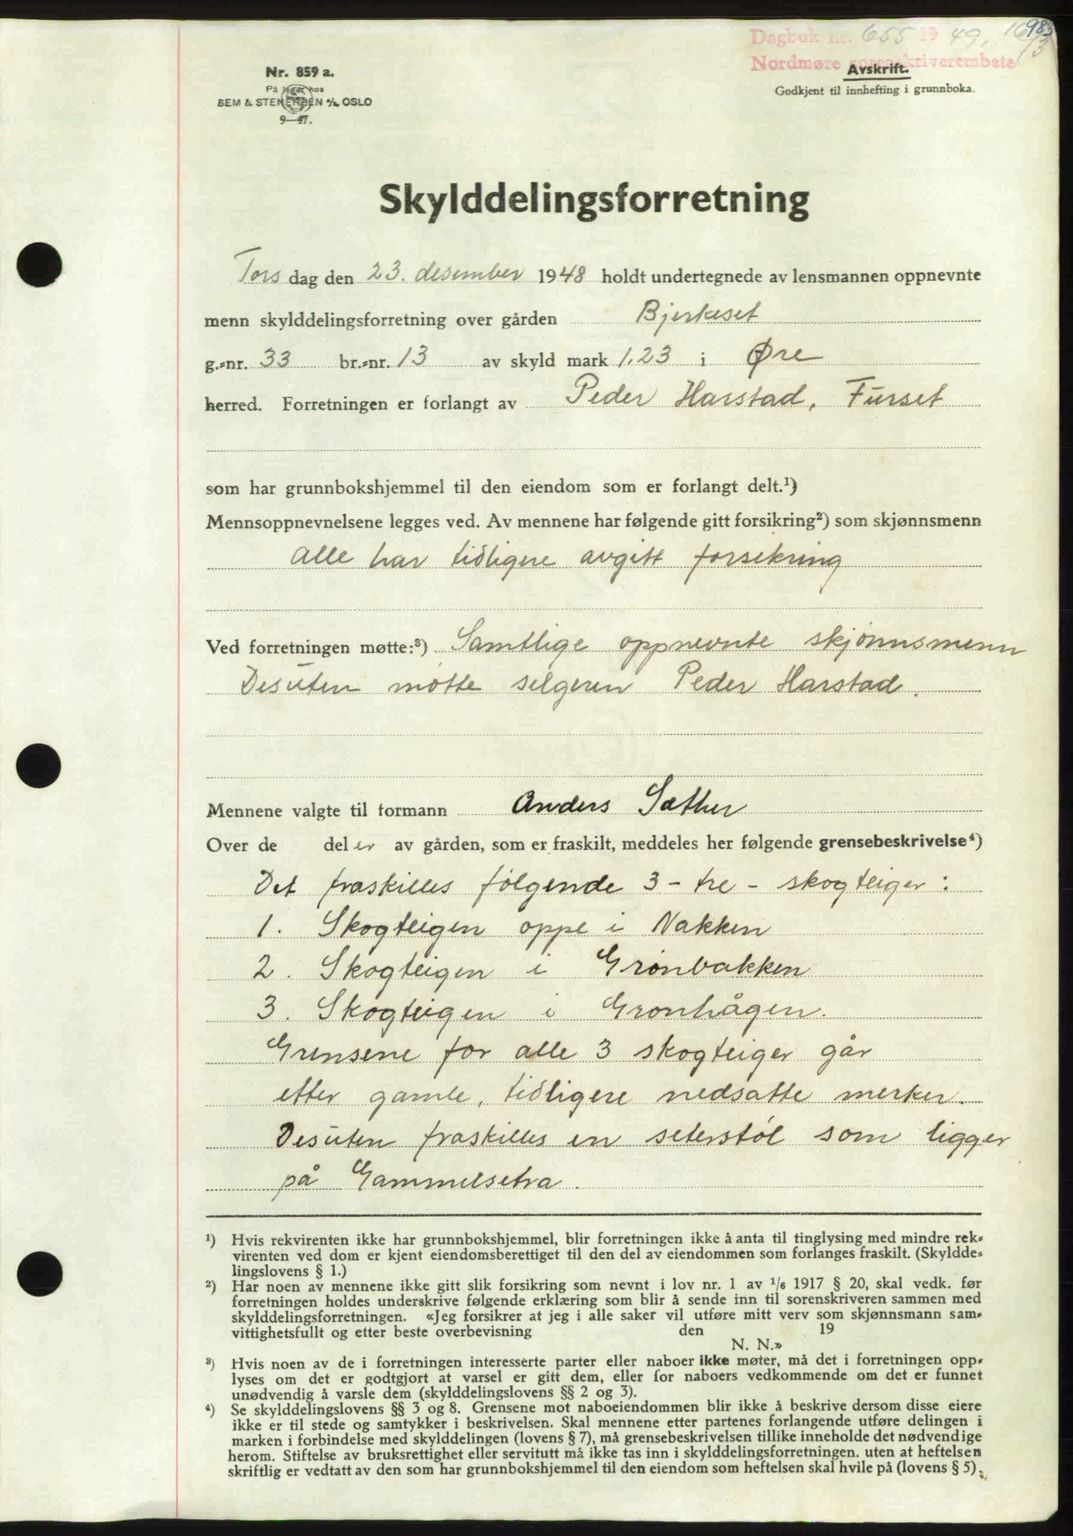 Dagbok nr. 655 1949, 16/3
983
Nordmøre sorenskriverembete
Nr. 859 a.
På lager hos
SEM & STENERSEN A/S, OSLO
9—47.
Avskrift.
Godkjent til innhefting i grunnboka.
Skylddelingsforretning
Tors dag den 23. desember 1948 holdt undertegnede av lensmannen oppnevnte
menn skylddelingsforretning over gården Bjerkeset
g.-nr. 33 br.-nr. 13 av skyld mark 1.23 i Øre
herred. Forretningen er forlangt av Peder Harstad, Furset
som har grunnbokshjemmel til den eiendom som er forlangt delt.¹)
Mennsoppnevnelsene legges ved. Av mennene har følgende gitt forsikring²) som skjønnsmenn
Alle har tidligere avgitt forsikring
Ved forretningen møtte:³) Samtlige oppnevnte skjønnsmenn
Desuten møtte selgeren Peder Harstad.
Mennene valgte til formann Anders Sæther
Over de del er av gården, som er fraskilt, meddeles her følgende grensebeskrivelse⁴)
Det fraskilles følgende 3 - tre - skogteiger:
1. Skogteigen oppe i Nakken
2. Skogteigen i Grønbakken
3. Skogteigen i Grønhågen.
Grensene for alle 3 skogteiger går
etter gamle, tidligere nedsatte merker.
Desuten fraskilles en seterstøl som ligger
på Gammelsetra.
¹) Hvis rekvirenten ikke har grunnbokshjemmel, blir forretningen ikke å anta til tinglysing med mindre rek-
virenten ved dom er kjent eiendomsberettiget til den del av eiendommen som forlanges fraskilt. (Skyldde-
lingslovens § 1.)
²) Har noen av mennene ikke gitt slik forsikring som nevnt i lov nr. 1 av 1/6 1917 § 20, skal vedk. før
forretningen holdes underskrive følgende erklæring som blir å sende inn til sorenskriveren sammen med
skylddelingsforretningen. «Jeg forsikrer at jeg i alle saker vil utføre mitt verv som skjønnsmann sam-
vittighetsfullt og etter beste overbevisning den 19
N. N.»
³) Hvis noen av de i forretningen interesserte parter eller naboer ikke møter, må det i forretningen opp-
lyses om det er godtgjort at varsel er gitt dem, eller for naboers vedkommende om det er funnet
unødvendig å varsle dem (skylddelingslovens §§ 2 og 3).
⁴) Se skylddelingslovens §§ 3 og 8. Grensene mot naboeiendommen blir ikke å beskrive dersom disse eiere
ikke er til stede og samtykker i beskrivelsen. Skal mennene etter partenes forlangende utføre delingen i
marken i forbindelse med skylddelingen (lovens § 7), må grensebeskrivelsen tillike inneholde det nødvendige
herom. Stiftelse av bruksrettighet eller servitutt må ikke tas inn i skylddelingsforretningen, uten at heftelsen
skriftlig er vedtatt av den som har grunnbokshjemmel til den eiendom som heftelsen skal hvile på (lovens § 5).